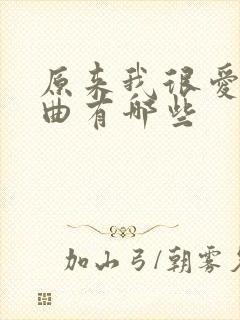 原来我很爱
曲有哪些
加山弓/朝雾